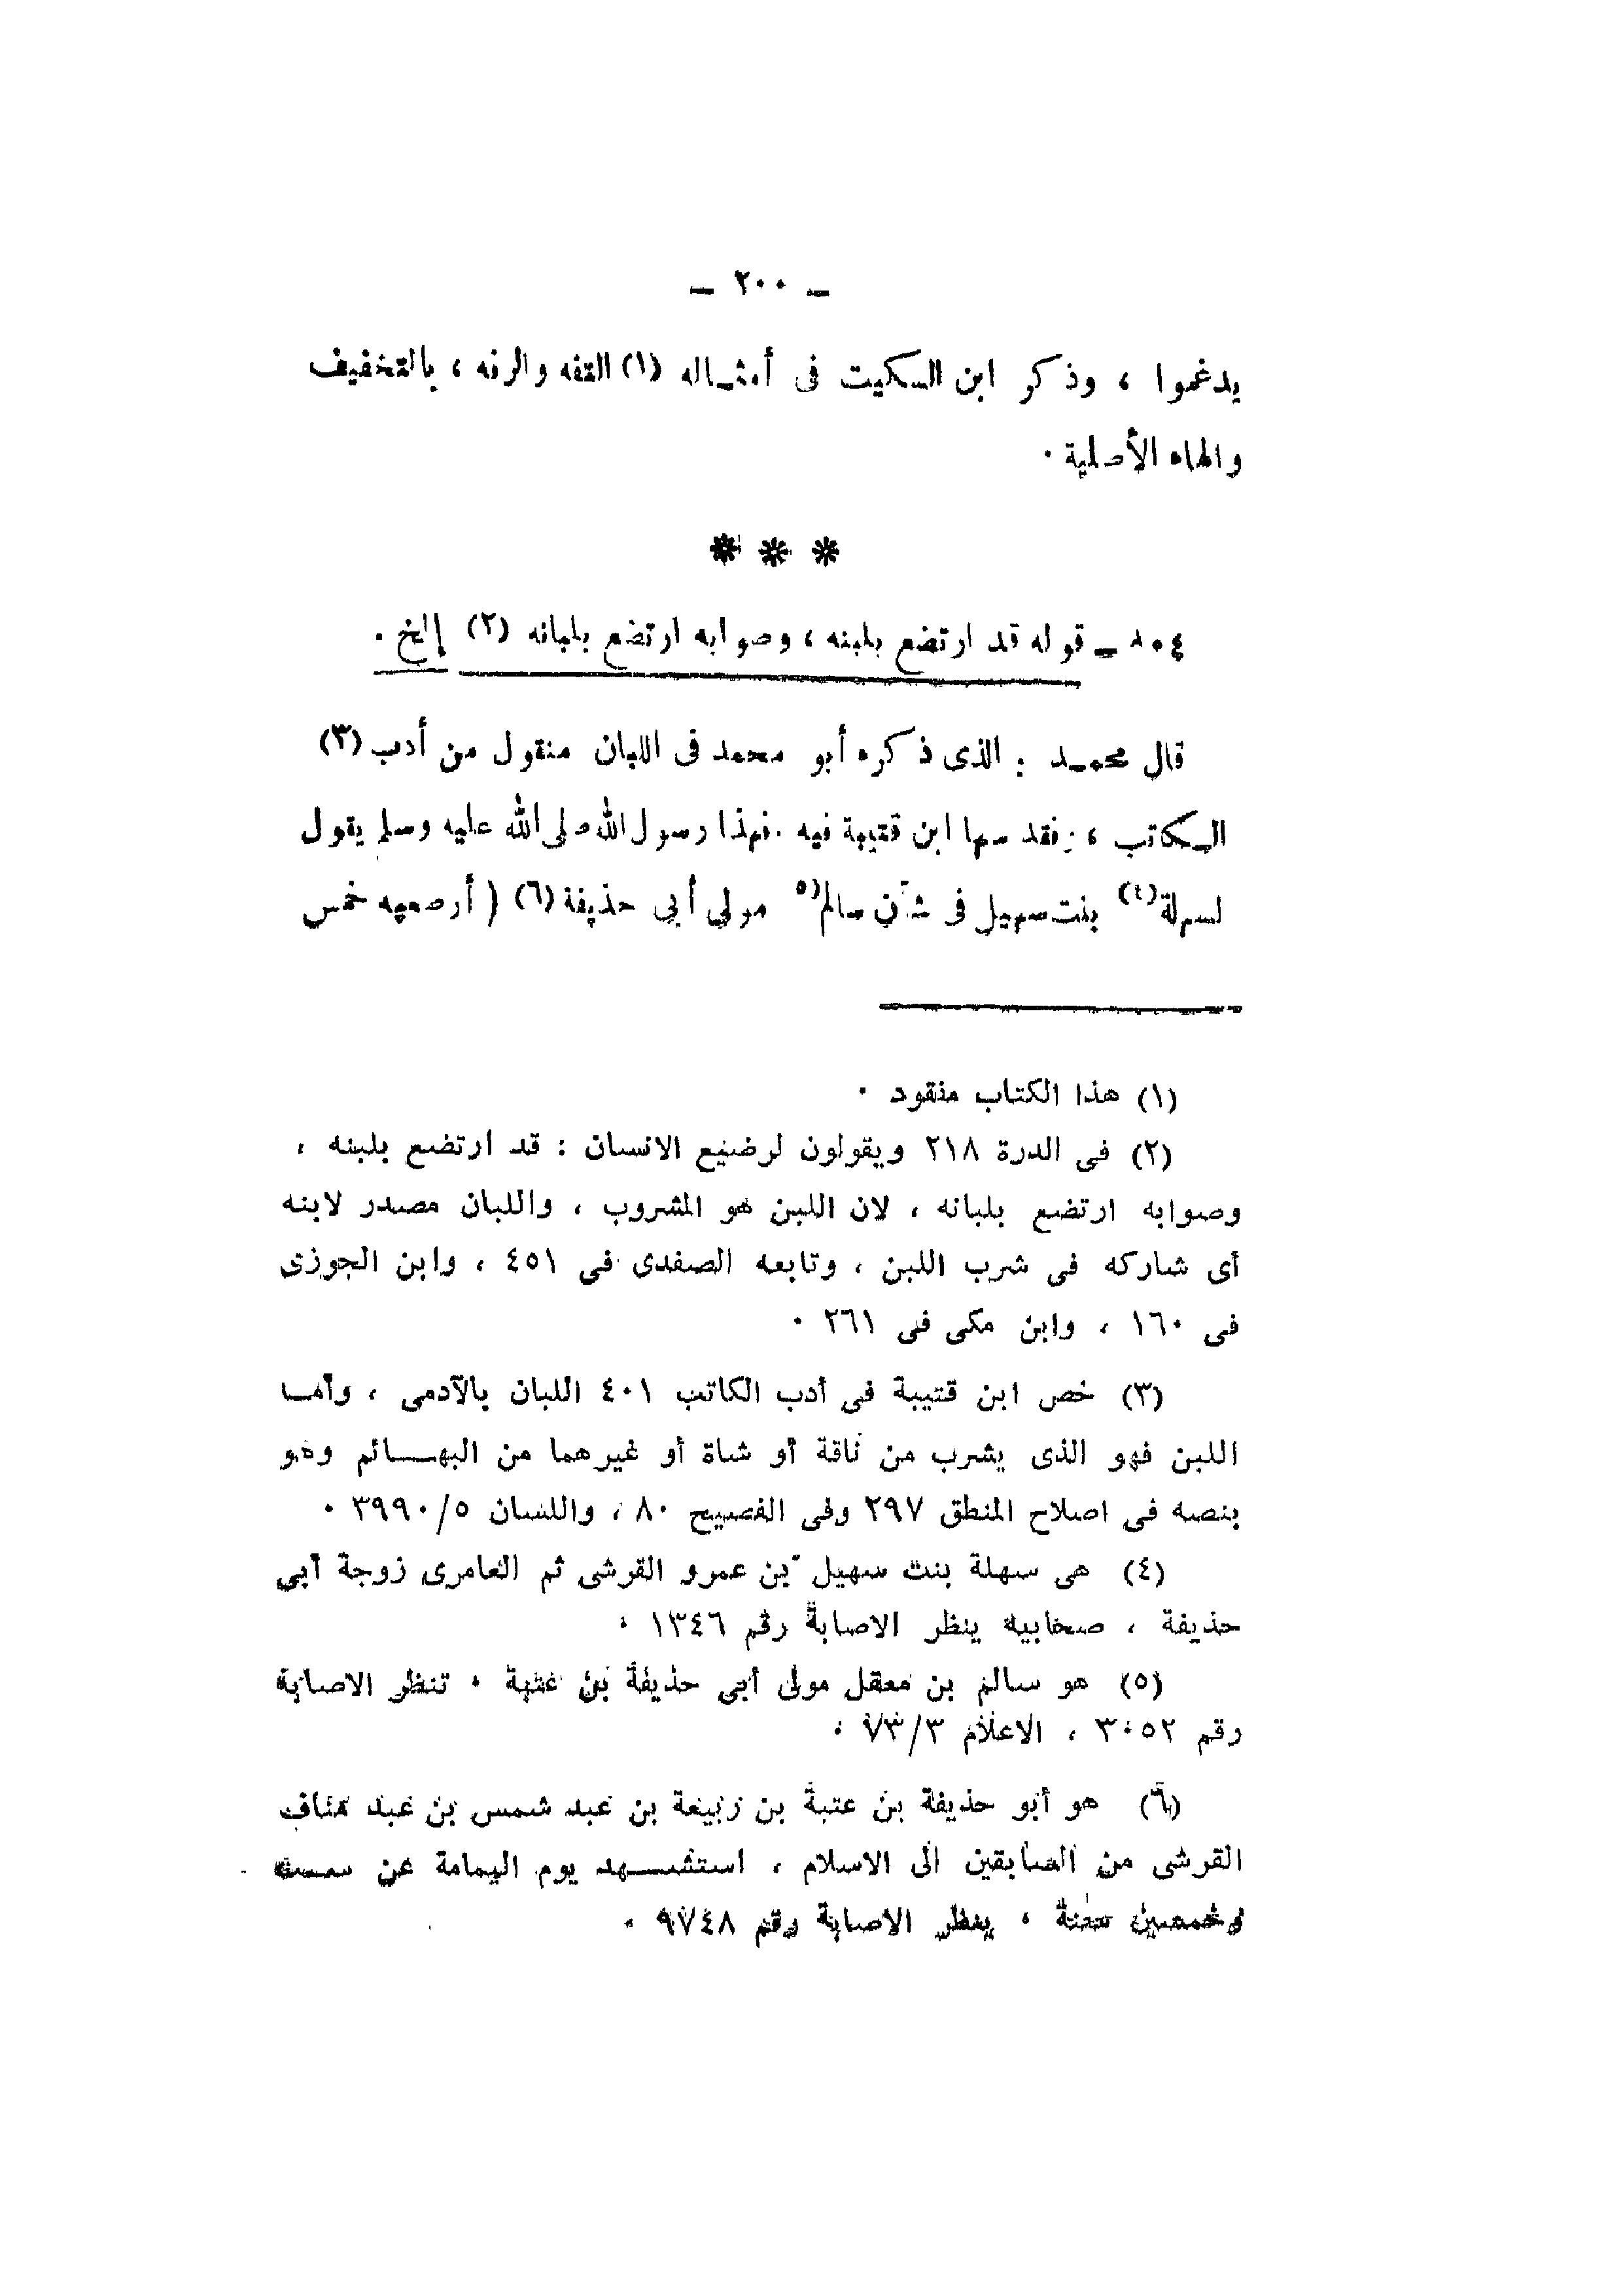 ـ ٢٠٠ ـ
يدغموا ، وذكر ابن السكيت فى أمثـاله (١) التفه والرفه ، بالتخفيف
والهاء الأصلية .
* * *
ـ قوله قد ارتضع بلبنه ، وصوابه ارتضع بلبانه (٢) إلخ .
قال محمـد : الذى ذكره أبو محمد فى اللبان منقول من أدب (٣)
الـكاتب ، فقد سها ابن قتيبة فيه . فهذا رسول الله صلى الله عليه وسلم يقول
لسهلة (٤) بنت سهيل فى شأن سالم (٥ مولى أبى حذيفة (٦) ( أرضعيه خمس
(١) هذا الكتاب مفقود .
(٢) فى الدرة ٢١٨ ويقولون لرضيع الانسان : قد ارتضع بلبنه ،
وصوابه ارتضع بلبانه ، لان اللبن هو المشروب ، واللبان مصدر لابنه
أى شاركه فى شرب اللبن ، وتابعه الصفدى فى ٤٥١ ، وابن الجوزى
فى ١٦٠ ، وابن مكى فى ٢٦١ .
(٣) خص ابن قتيبة فى أدب الكاتب ٤٠١ اللبان بالآدمى ، وأمـا
اللبن فهو الذى يشرب من ناقة أو شاة أو غيرهما من البهـــائم وهو
بنصه فى اصلاح المنطق ٢٩٧ وفى الفصيح ٨٠ ، واللسان ٣٩٩٠/٥ .
(٤) هى سهلة بنت سهيل بن عمرو القرشى ثم العامرى زوجة أبى
حذيفة ، صحابية ينظر الاصابة رقم ١٣٤٦ .
(٥) هو سالم بن معقل مولى أبى حذيفة بن عتبة . تنظر الاصابة
رقم ٣٠٥٢ ، الاعلام ٧٣/٣ .
(٦) هو أبو حذيفة بن عتبة بن ربيعة بن عبد شمس بن عبد مناف
القرشى من السابقين الى الاسلام ، استشــهد يوم اليمامة عن ســت
وخمسين سنة ، ينظر الاصابة رقم ٩٧٤٨ .